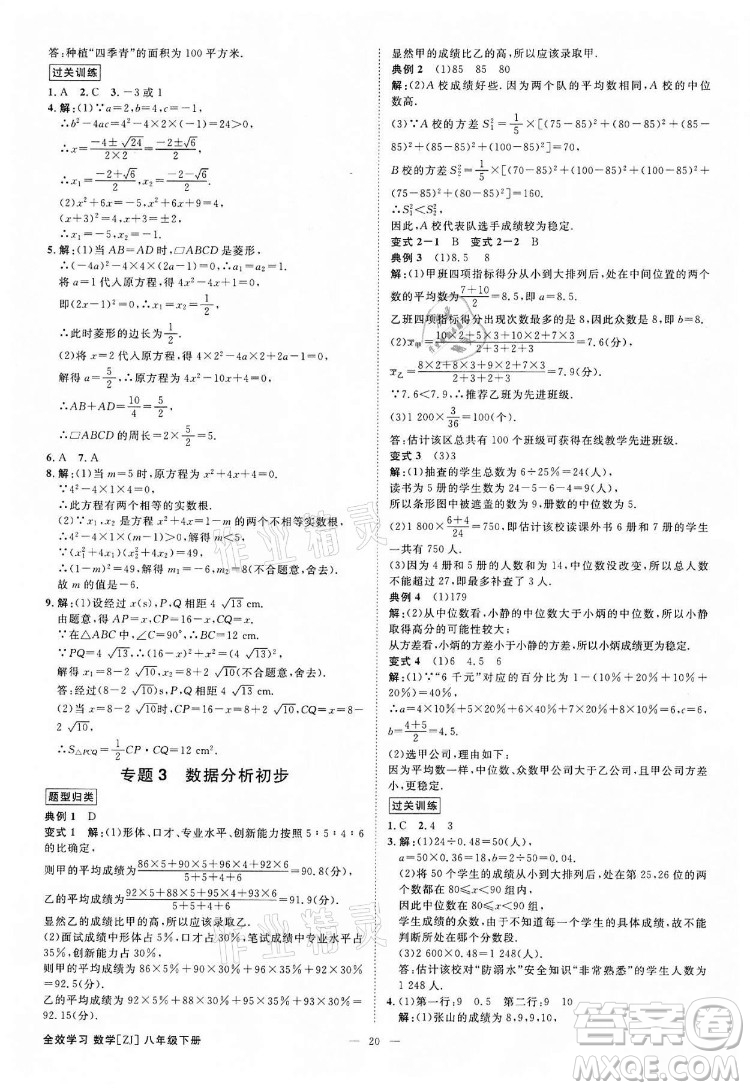 答:种植“四季青”的面积为 100 平方米.
过关训练
1. A  2. C  3. -3 或 1
4. 解:(1)∵a=2,b=4,c=-1
∴b²-4ac=4²-4×2×(-1)=24>0,
∴x=(-4±√24)/(2×2)=(-2±√6)/2,
∴x₁=(-2+√6)/2,x₂=(-2-√6)/2.
(2)x²+6x=0,x²+6x+9=9,
(x+3)²=9,
∴x₁=0,x₂=-6.
5. 解:(1)当 AB=AD 时,▱ABCD 是菱形,
∴(-4a)²-4×4(2a-1)=0,
即(2a-2)²=0,∴a=1,
此时原方程为 4x²-4x+1=0,
即(2x-1)²=0,∴x₁=x₂=1/2,
∴此时菱形的边长为 1/2.
(2)将 x=2 代入原方程,得 4×2²-4a×2+2a-1=0,
解得 a=5/2.
将 a=5/2 代入原方程,得 4x²-10x+4=0,
∴AB+AD=10/4=5/2,
∴▱ABCD 的周长为 2×5/2=5.
6. A  7. A
8. 解:(1)当 m=5 时,原方程为 x²+4x+4=0.
∵4²-4×1×4=0,
∴此方程有两个相等的实数根.
(2)∵x₁,x₂ 是方程 x²+4x+m-1=0 的两个实数根,
∴4²-4×1×(m-1)≥0,∴m≤5.
∵(x₁²+4x₁+m)(x₂²+4x₂+m)=x₁²x₂²,
∴(x₁²+4x₁+m-1+1)(x₂²+4x₂+m-1+1)=(x₁x₂)²,
∴(m-1)²=1,解得 m=2 或 m=0(不合题意,舍去),
故 m 的值为 2.
9. 解:(1)设经过 x(s),P,Q 相距 4√13 cm.
由题意,得 CP=16-2x,CQ=3x.
∵在△ABC 中,∠C=90°,
∴PQ=4√13=√((16-2x)²+(3x)²),
解得 x₁=8-2√13,x₂=8+2√13(不合题意,舍去).
答:经过(8-2√13)s,P,Q 相距 4√13 cm.
(2)当 x=2 时,CP=12,CQ=6,
∴S△PCQ=1/2 CP·CQ=1/2×12×6=36(cm²).
专题 3  数据分析初步
题型归类
典例 1  D
变式 1  解:(1)形体、口才、专业水平、创新能力按照 5∶5∶4∶6 的比确定,
则甲的平均成绩为 (86×5+90×5+96×4+92×6)/(5+5+4+6)=90.8(分),
乙的平均成绩为 (92×5+88×5+95×4+93×6)/(5+5+4+6)=91.9(分),
显然乙的成绩比甲的高,所以应该录取乙.
(2)面试成绩中形体占 5%,口才占 30%,笔试成绩中专业水平占 35%,创新能力占 30%,
则甲的平均成绩为 86×5%+90×30%+96×35%+92×30%=92.5(分),
乙的平均成绩为 92×5%+88×30%+95×35%+93×30%=92.15(分),
显然甲的成绩比乙的高,所以应该录取甲.
典例 2  (1)85  85  80
解:(2)A 校成绩好些.因为两个队的平均数相同,A 校的中位数高.
(3)∵A 校的方差 S₁²=1/5×[(75-85)²+(80-85)²+(85-85)²+(85-85)²+(100-85)²]=70,
B 校的方差 S₂²=1/5×[(70-85)²+(100-85)²+(100-85)²+(75-85)²+(80-85)²]=160.
∴S₁²<S₂²,
因此,A 校代表队选手成绩较为稳定.
变式 2-1  B  变式 2-2  B
典例 3  (1)8.5  8
解:(1)甲班四项指标得分从小到大排列后,处在中间位置的两个数的平均数为 (7+10)/2=8.5,即 a=8.5,
乙班四项指标得分出现次数最多的是 8,因此众数是 8,即 b=8.
(2)x̄甲=(10×2+10×2+6×3+7×3)/(2+3+2+3)=7.6(分),
x̄乙=(8×2+8×3+9×2+7×3)/(2+3+2+3)=7.9(分),
∵7.6<7.9,∴推荐乙班为先进班级.
(3)1 200×3/36=100(个).
答:估计该区总共有 100 个班级可获得在线教学先进班级.
变式 3  (3)3
解:(1)抽查的学生总数为 6÷25%=24(人),
读书为 5 册的学生数为 24-5-6-4=9(人),
所以条形图中被遮盖的数为 9,册数的中位数为 5.
(2)1 800×(6+4)/24=750(人),估计该校读课外书 6 册的学生一共有 750 人.
(3)因为 4 册和 5 册的人数和为 14,中位数没改变,所以总人数不能超过 27,即最多补查了 3 人.
典例 4  (1)179
解:(2)从中位数看,小静的中位数大于小炳的中位数,所以小静取得高分的可能性较大;
从方差看,小炳的方差大于小静的方差,所以小静的成绩更为稳定.
变式 4  (1)6  4.5  6
解:(1)∵“6 千元”对应的百分比为 1-(10%+20%+10%+20%)=40%,
∴a=4×10%+5×20%+6×40%+7×20%+8×10%=6,
b=(4+5)/2=4.5,c=6.
(2)选甲公司,理由如下:
因为平均数一样,中位数、众数甲公司大于乙公司,且甲公司方差小,更稳定.
过关训练
1. C  2. 4  3
3. 解:(1)24÷0.48=50(名),
a=0.2×50=10,b=2÷50=0.04.
(2)将 50 个学生成绩从小到大排列,处在第 25、26 位的两个数都在 80≤x<90 内,因此中位数在 80≤x<90 内,
学生成绩的众数不一定在 80≤x<90 内,因为尽管该组学生成绩频率最大,但具体数据不明确,所以无法具体判断众数所在的范围.
(3)2 600×0.48=1 248(人).
答:估计该校对“防溺水”安全知识“非常熟悉”的学生人数是 1 248.
4. (1)第一行:9  0.5  第二行:9  10
解:(2)张山的成绩较为稳定,
全效学习 数学[ZJ] 八年级下册
— 20 —
作业精灵
答案圈
MXQE.COM